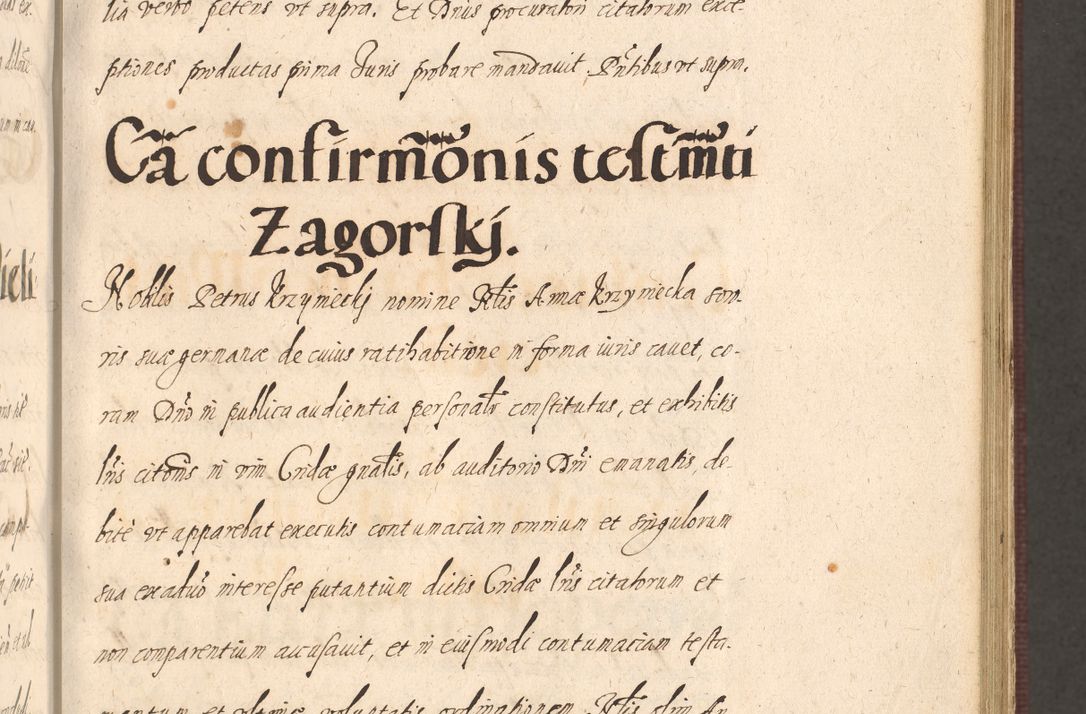 lia verbo petens ut supra. Et Dnus procuratori citatorum exce-
ptiones productas prima Juris probare mandavit. Pntibus ut supra.
Cã confirmõnis testmti
Zagorskj.
Nobilis Petrus Krzyniecki nomine Nblis Annæ Krzyniecka soro-
ris suæ germanæ de cuius ratihabitione in forma iuris cavet, co-
ram Dno in publica audientia personalr constitutus, et exhibitis
lris citõnis in vim Cridæ gnalis, ab auditorio Dni emanatis, de-
bitè ut apparebat executis contumaciam omnium et singulorum
sua exaduo interesse putantium dictis Cridæ lris citatorum et
non comparentium accusavit, et in eiusmodi contumaciam testa-
mentum et ultimæ voluntatis ordinationem Nblis olim An